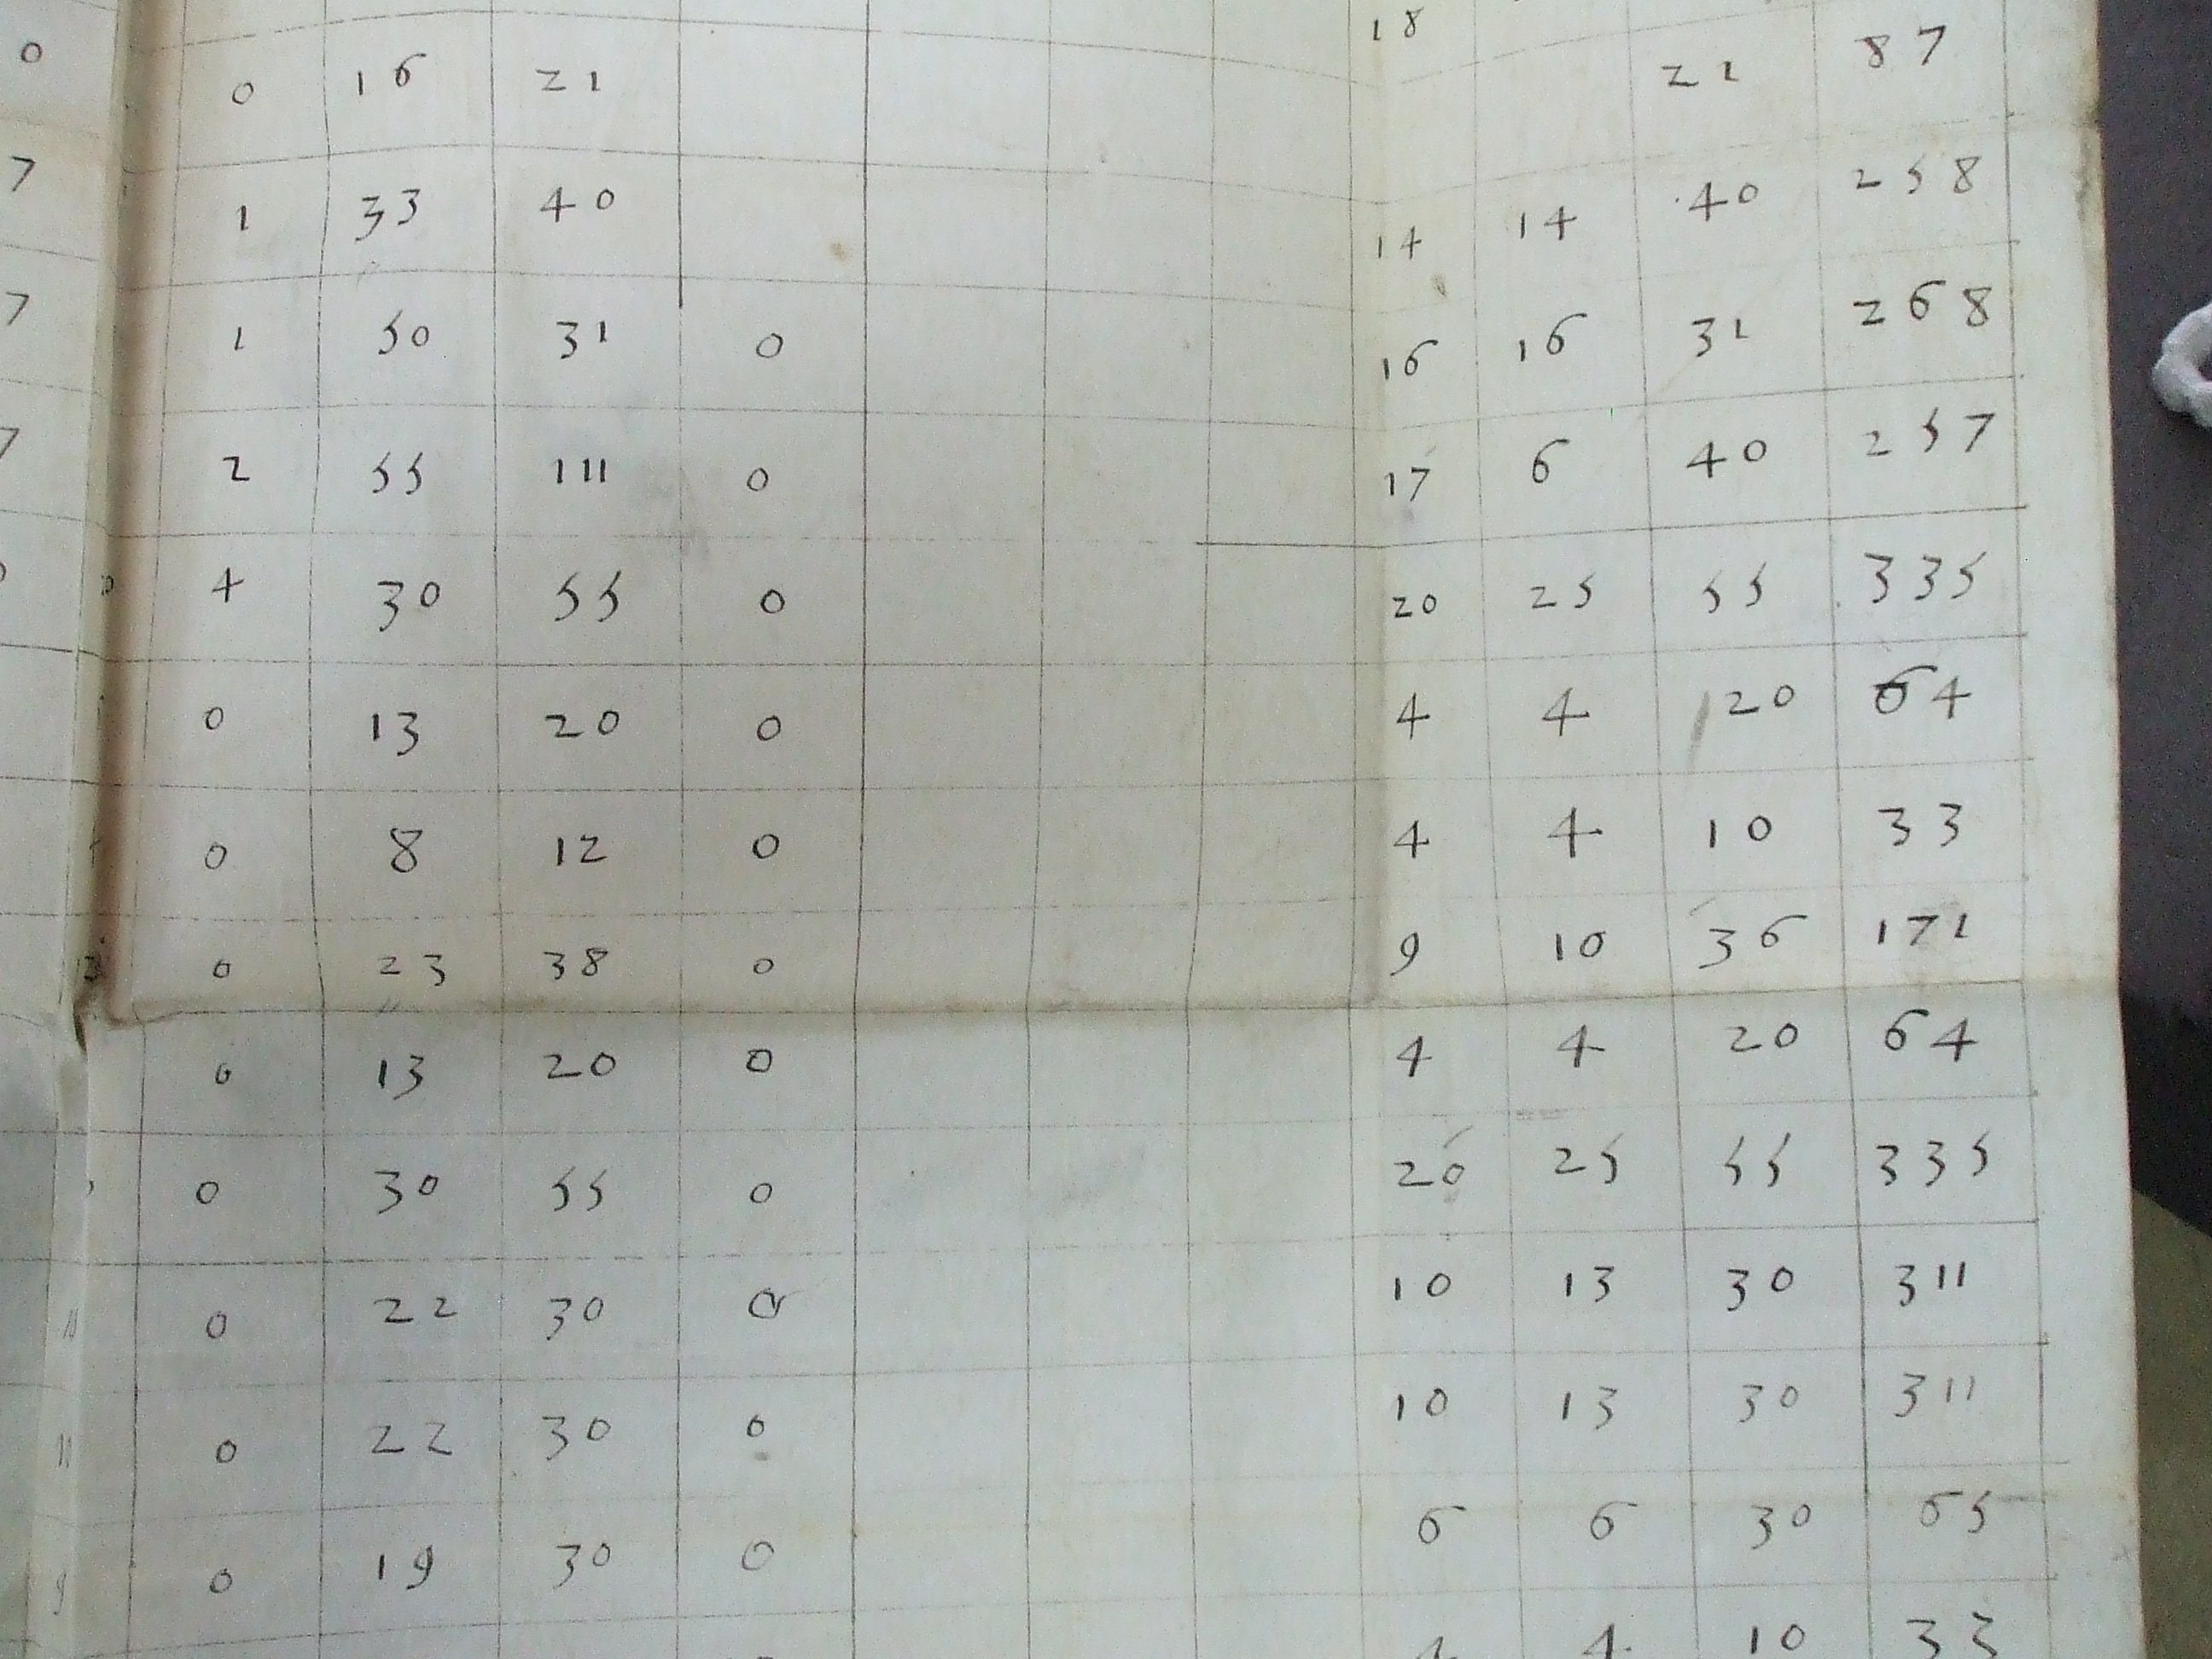 0 0 16 21 18 21 87
7 1 33 40 14 14 40 258
7 1 50 31 0 16 16 31 268
7 2 55 111 0 17 6 40 257
4 30 55 0 20 25 55 335
0 13 20 0 4 4 20 64
0 8 12 0 4 4 10 33
0 23 38 0 9 10 36 171
0 13 20 0 4 4 20 64
0 30 55 0 20 25 55 335
11 0 22 30 0 10 13 30 311
11 0 22 30 0 10 13 30 311
9 0 19 30 0 6 6 30 65
4 4 10 33